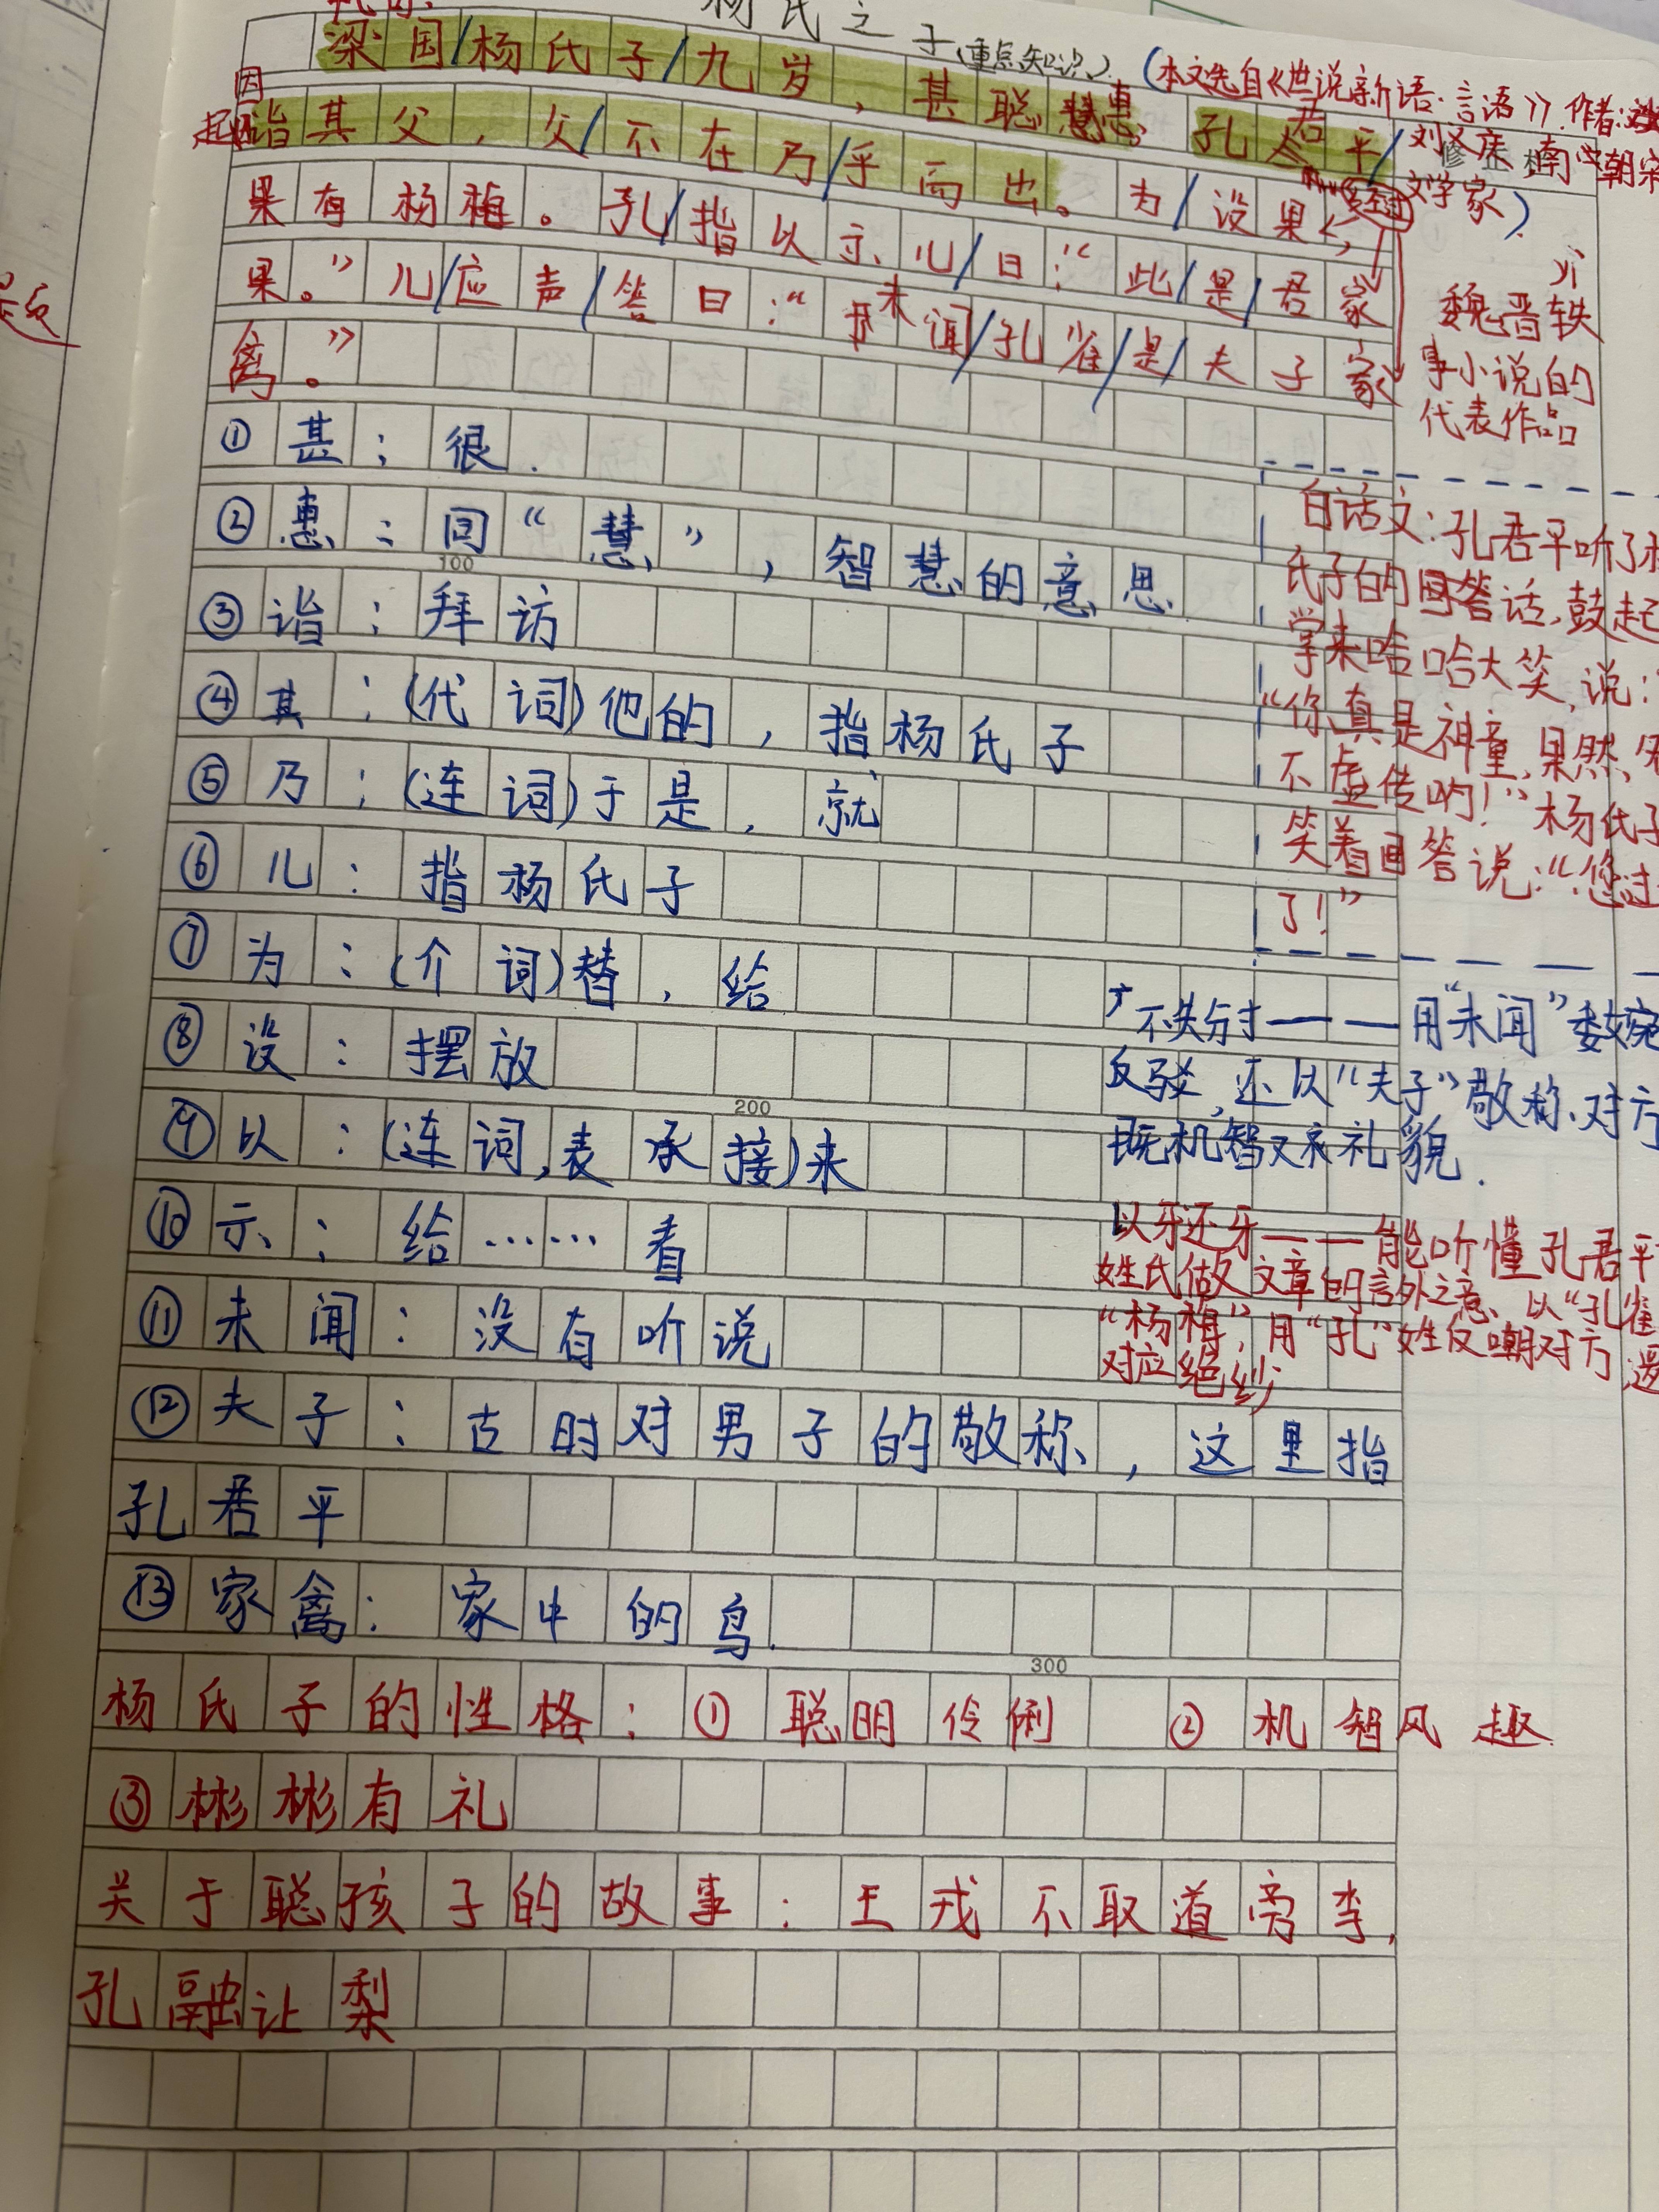 杨氏之子(重点知识)
(本文选自《世说新语·言语》作者:
刘义庆 南朝宋
文学家)
梁国/杨氏子/九岁,甚聪惠。孔君平/
因
起因
诣其父,父/不在乃/乎而出。为/设果,
果有杨梅。孔/指以示儿/曰:“此/是/君家
果。”儿/应声/答曰:“未闻/孔雀/是/夫子家
禽。”
魏晋轶
事小说的
代表作品
①甚:很.
②惠:同“慧”,智慧的意思.
③诣:拜访
④其:(代词)他的,指杨氏子
⑤乃:(连词)于是,就
⑥儿:指杨氏子
⑦为:(介词)替,给
⑧设:摆放
⑨以:(连词,表承接)来
⑩示:给……看
⑪未闻:没有听说
⑫夫子:古时对男子的敬称,这里指
孔君平
⑬家禽:家中的鸟.
100
200
300
白话文:孔君平听了杨
氏子的回答话,鼓起
掌来哈哈大笑,说:
“你真是神童,果然名
不虚传啊!”杨氏子
笑着回答说:“您过
了!”
不失分寸——用“未闻”委婉
反驳,还以“夫子”敬称对方
既机智又有礼貌.
以牙还牙——能听懂孔君平
姓氏做文章的言外之意、以“孔雀
“杨梅”,用“孔”姓反嘲对方,
对应绝妙
杨氏子的性格:①聪明伶俐 ②机智风趣
③彬彬有礼
关于聪孩子的故事:王戎不取道旁李,
孔融让梨